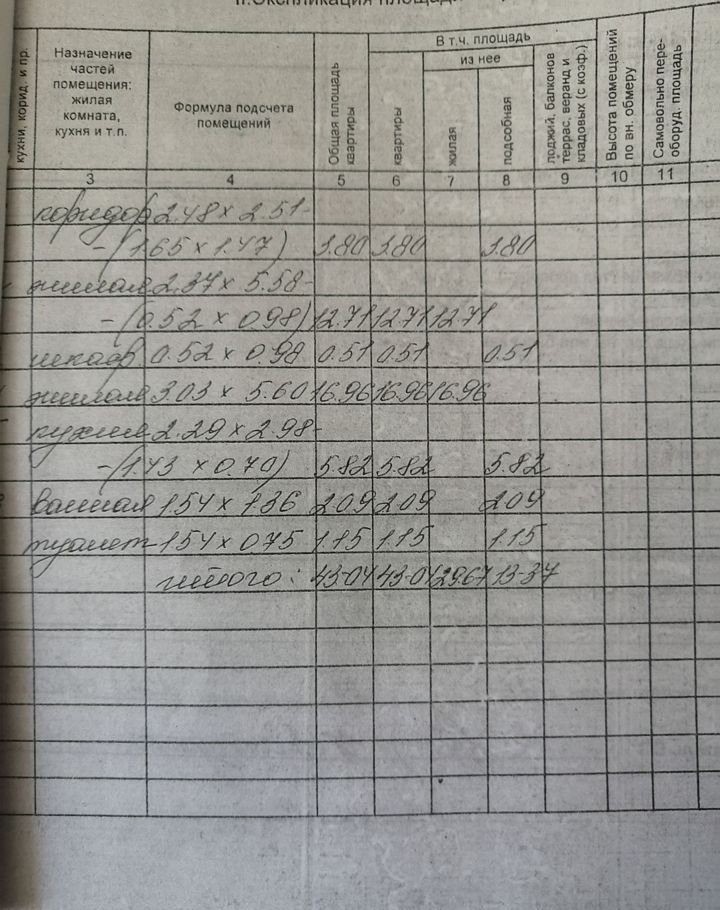 II. Экспликация площади
кухни, корид. и пр.
Назначение
частей
помещения:
жилая
комната,
кухня и т.п.
Формула подсчета
помещений
Общая площадь
квартиры
В т.ч. площадь
квартиры
из нее
жилая
подсобная
лоджий, балконов
террас, веранд и
кладовых (с коэф.)
Высота помещений
по вн. обмеру
Самовольно пере-
оборуд. площадь
3 4 5 6 7 8 9 10 11
коридор 2.48 x 2.51-
-(1.65 x 1.47) 3.80 3.80 3.80
жилая 2.37 x 5.58-
-(0.52 x 0.98) 12.71 12.71 12.71
шкаф 0.52 x 0.98 0.51 0.51 0.51
жилая 3.03 x 5.60 16.96 16.96 16.96
кухня 2.29 x 2.98-
-(1.43 x 0.70) 5.82 5.82 5.82
ванная 1.54 x 1.36 2.09 2.09 2.09
туалет 1.54 x 0.75 1.15 1.15 1.15
итого: 43-04 43-04 29.67 13-37